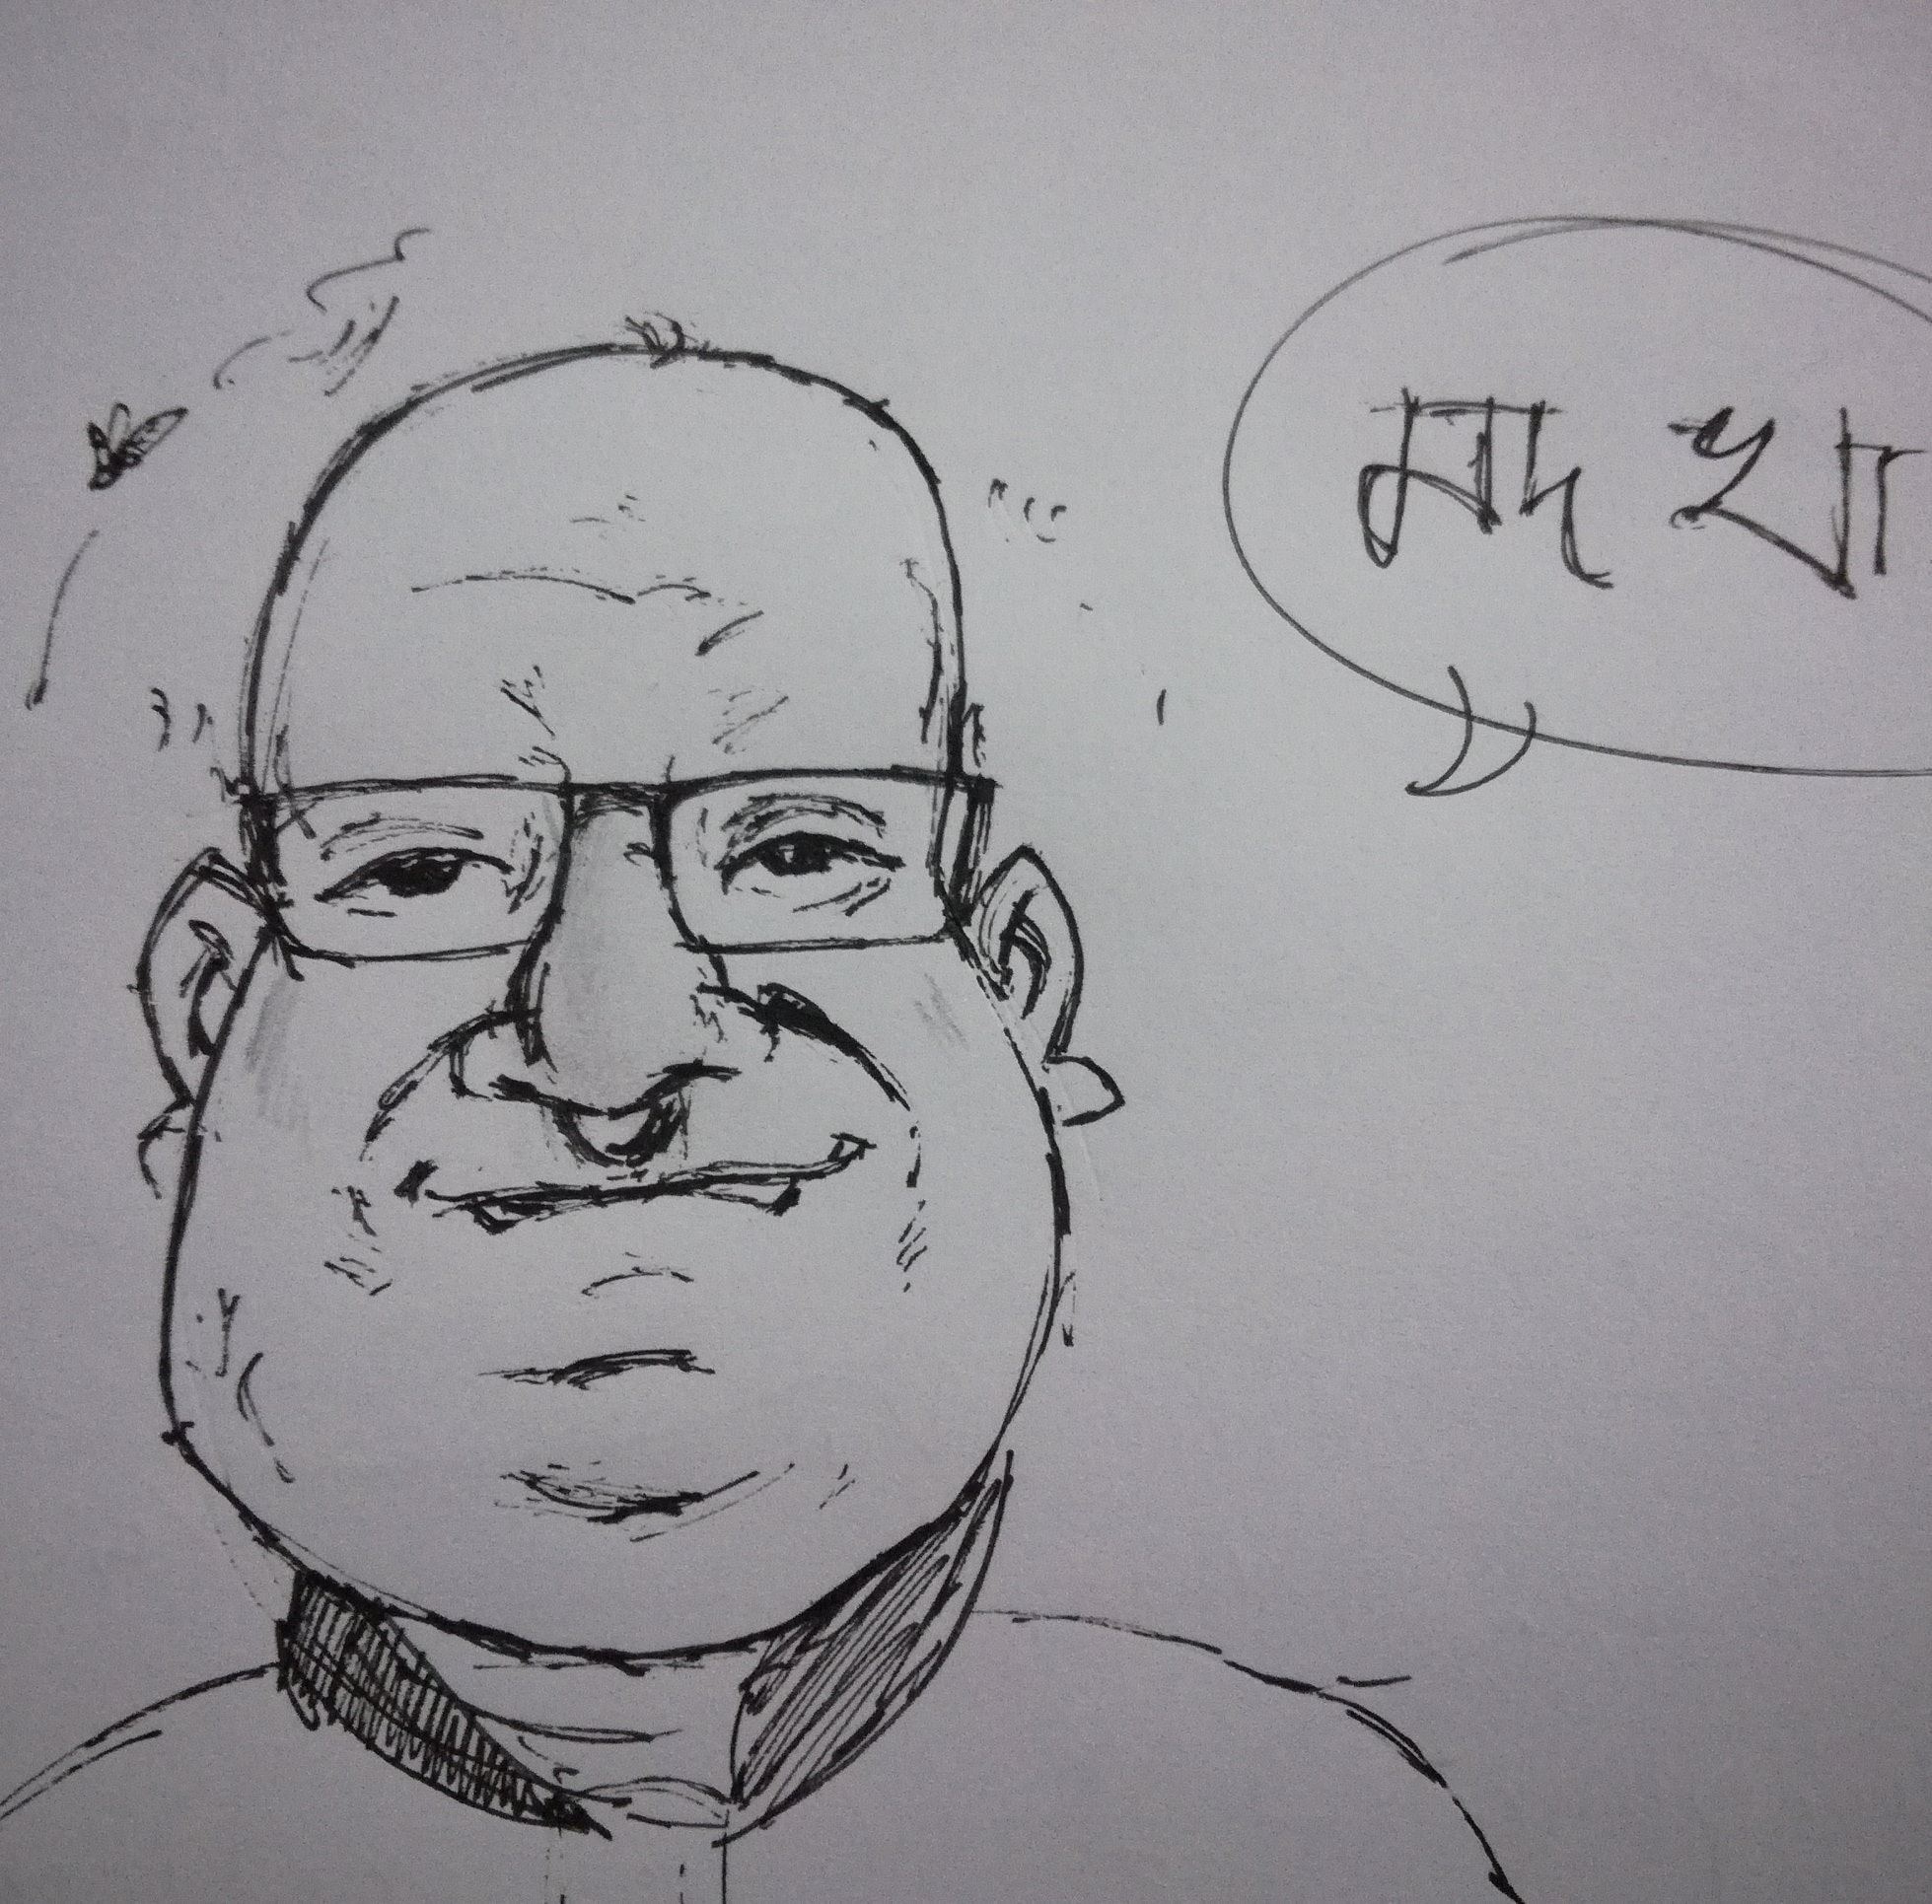 মদ খা